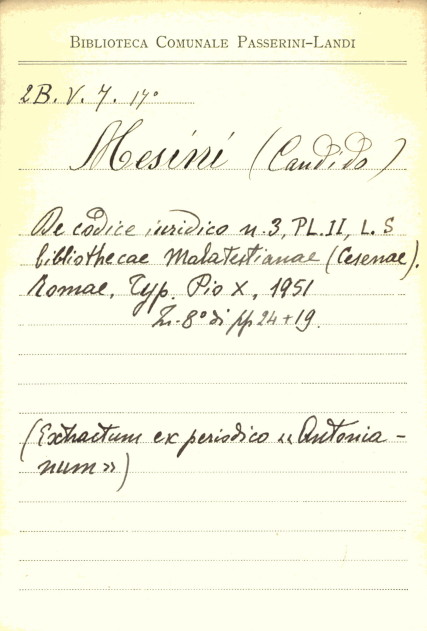 BIBLIOTECA COMUNALE PASSERINI-LANDI
2B. V. 7. 17°
Mesini (Candido)
De codice iuridico n. 3, PL. II, L. S
bibliothecae Malatestianae (Cesenae).
Romae, Typ. Pio X, 1951
In-8° di pp 24+19.
(Extractum ex periodico «Antonia-
num»)